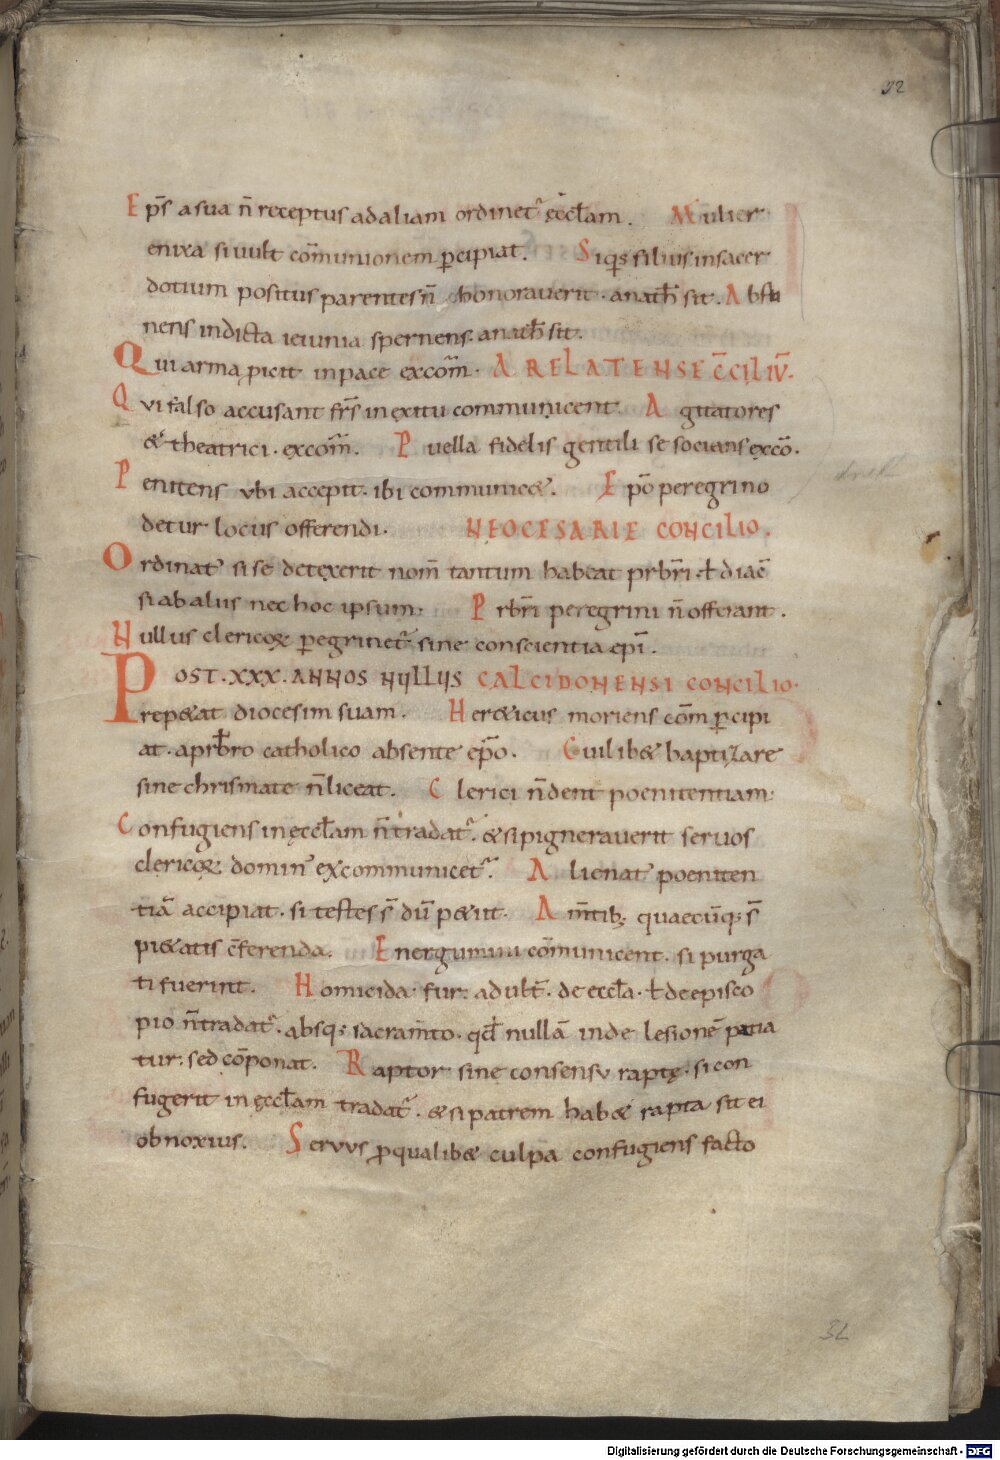 32
Ep̄s a sua n̄ receptus ad aliam ordinet᷑ ęccl̄am. Mulier
enixa si uult cōmunionem ꝑcipiat. Siqꝫ filius in sacer
dotium positus parentes n̄ honorauerit. anath̄ sit. Absti
nens indicta ieiunia spernens. anath̄ sit.
Qui arma ꝓicit in pace excom̄. ARELATENSE C̄CILIV̄.
Qui falso accusant fr̄s in exitu communicent. Agitatores
& theatrici. excom̄. Puella fidelis gentili se socians excō.
Penitens vbi accepit. ibi communic&. Ep̄o peregrino
detur locus offerendi. NEOCESARIE CONCILIO.
Ordinat᷑ si se detexerit nom̄ tantum habeat prb̄ri. ł diac̄
si ab aliis nec hoc ipsum. Prb̄ri peregrini n̄ offerant.
Nullus clericoꝝ ꝑegrinet᷑ sine conscientia ep̄i.
POST. XXX. ANNOS NULLUS CALCIDONENSI CONCILIO.
rep&at diocesim suam. Her&icus moriens cōm ꝑcipi
at. a prb̄ro catholico absente ep̄o. Cuilib& baptizare
sine chrismate n̄ liceat. Clerici n̄ dent poenitentiam.
Confugiens in ęccl̄am n̄ tradat᷑. & si pignerauerit seruos
clericoꝝ domin᷒ excommunicet᷑. Alienat᷒ poeniten
tiā accipiat. si testes s̄ dū p&iit. Am̄tibꝫ quaecūqꝫ s̄
pi&atis c̄ferenda. Energumini cōmunicent. si purga
ti fuerint. Homicida. fur. adult̄. de eccl̄a. ł de episco
pio n̄ tradat᷑. absqꝫ sacram̄to. qd̄ nullā inde lesionē patia
tur. sed cōponat. Raptor sine consensv raptę. si con
fugerit in ęccl̄am tradat᷑. & si patrem hab& rapta sit ei
obnoxius. Servvs ꝓ qualib& culpa confugiens facto
32
Digitalisierung gefördert durch die Deutsche Forschungsgemeinschaft - DFG